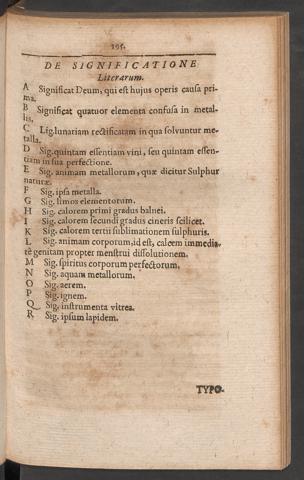 195.
DE SIGNIFICATIONE
Literarum.
A Significat Deum, qui est hujus operis causa pri-
ma.
B Significat quatuor elementa confusa in metal-
lis.
C Lig. lunariam rectificatam in qua solvuntur me-
talla.
D Sig. quintam essentiam vini, seu quintam essen-
tiam in sua perfectione.
E Sig. animam metallorum, quæ dicitur Sulphur
naturæ.
F Sig. ipsa metalla.
G Sig. limos elementorum.
H Sig. calorem primi gradus balnei.
I Sig. calorem secundi gradus cineris scilicet.
K Sig. calorem tertii sublimationem sulphuris.
L Sig. animam corporum, id est, calcem immedia-
tè genitam propter menstrui dissolutionem.
M Sig. spiritus corporum perfectorum,
N Sig. aquam metallorum.
O Sig. aerem.
P Sig. ignem.
Q Sig. instrumenta vitrea.
R Sig. ipsum lapidem.
TYPO-